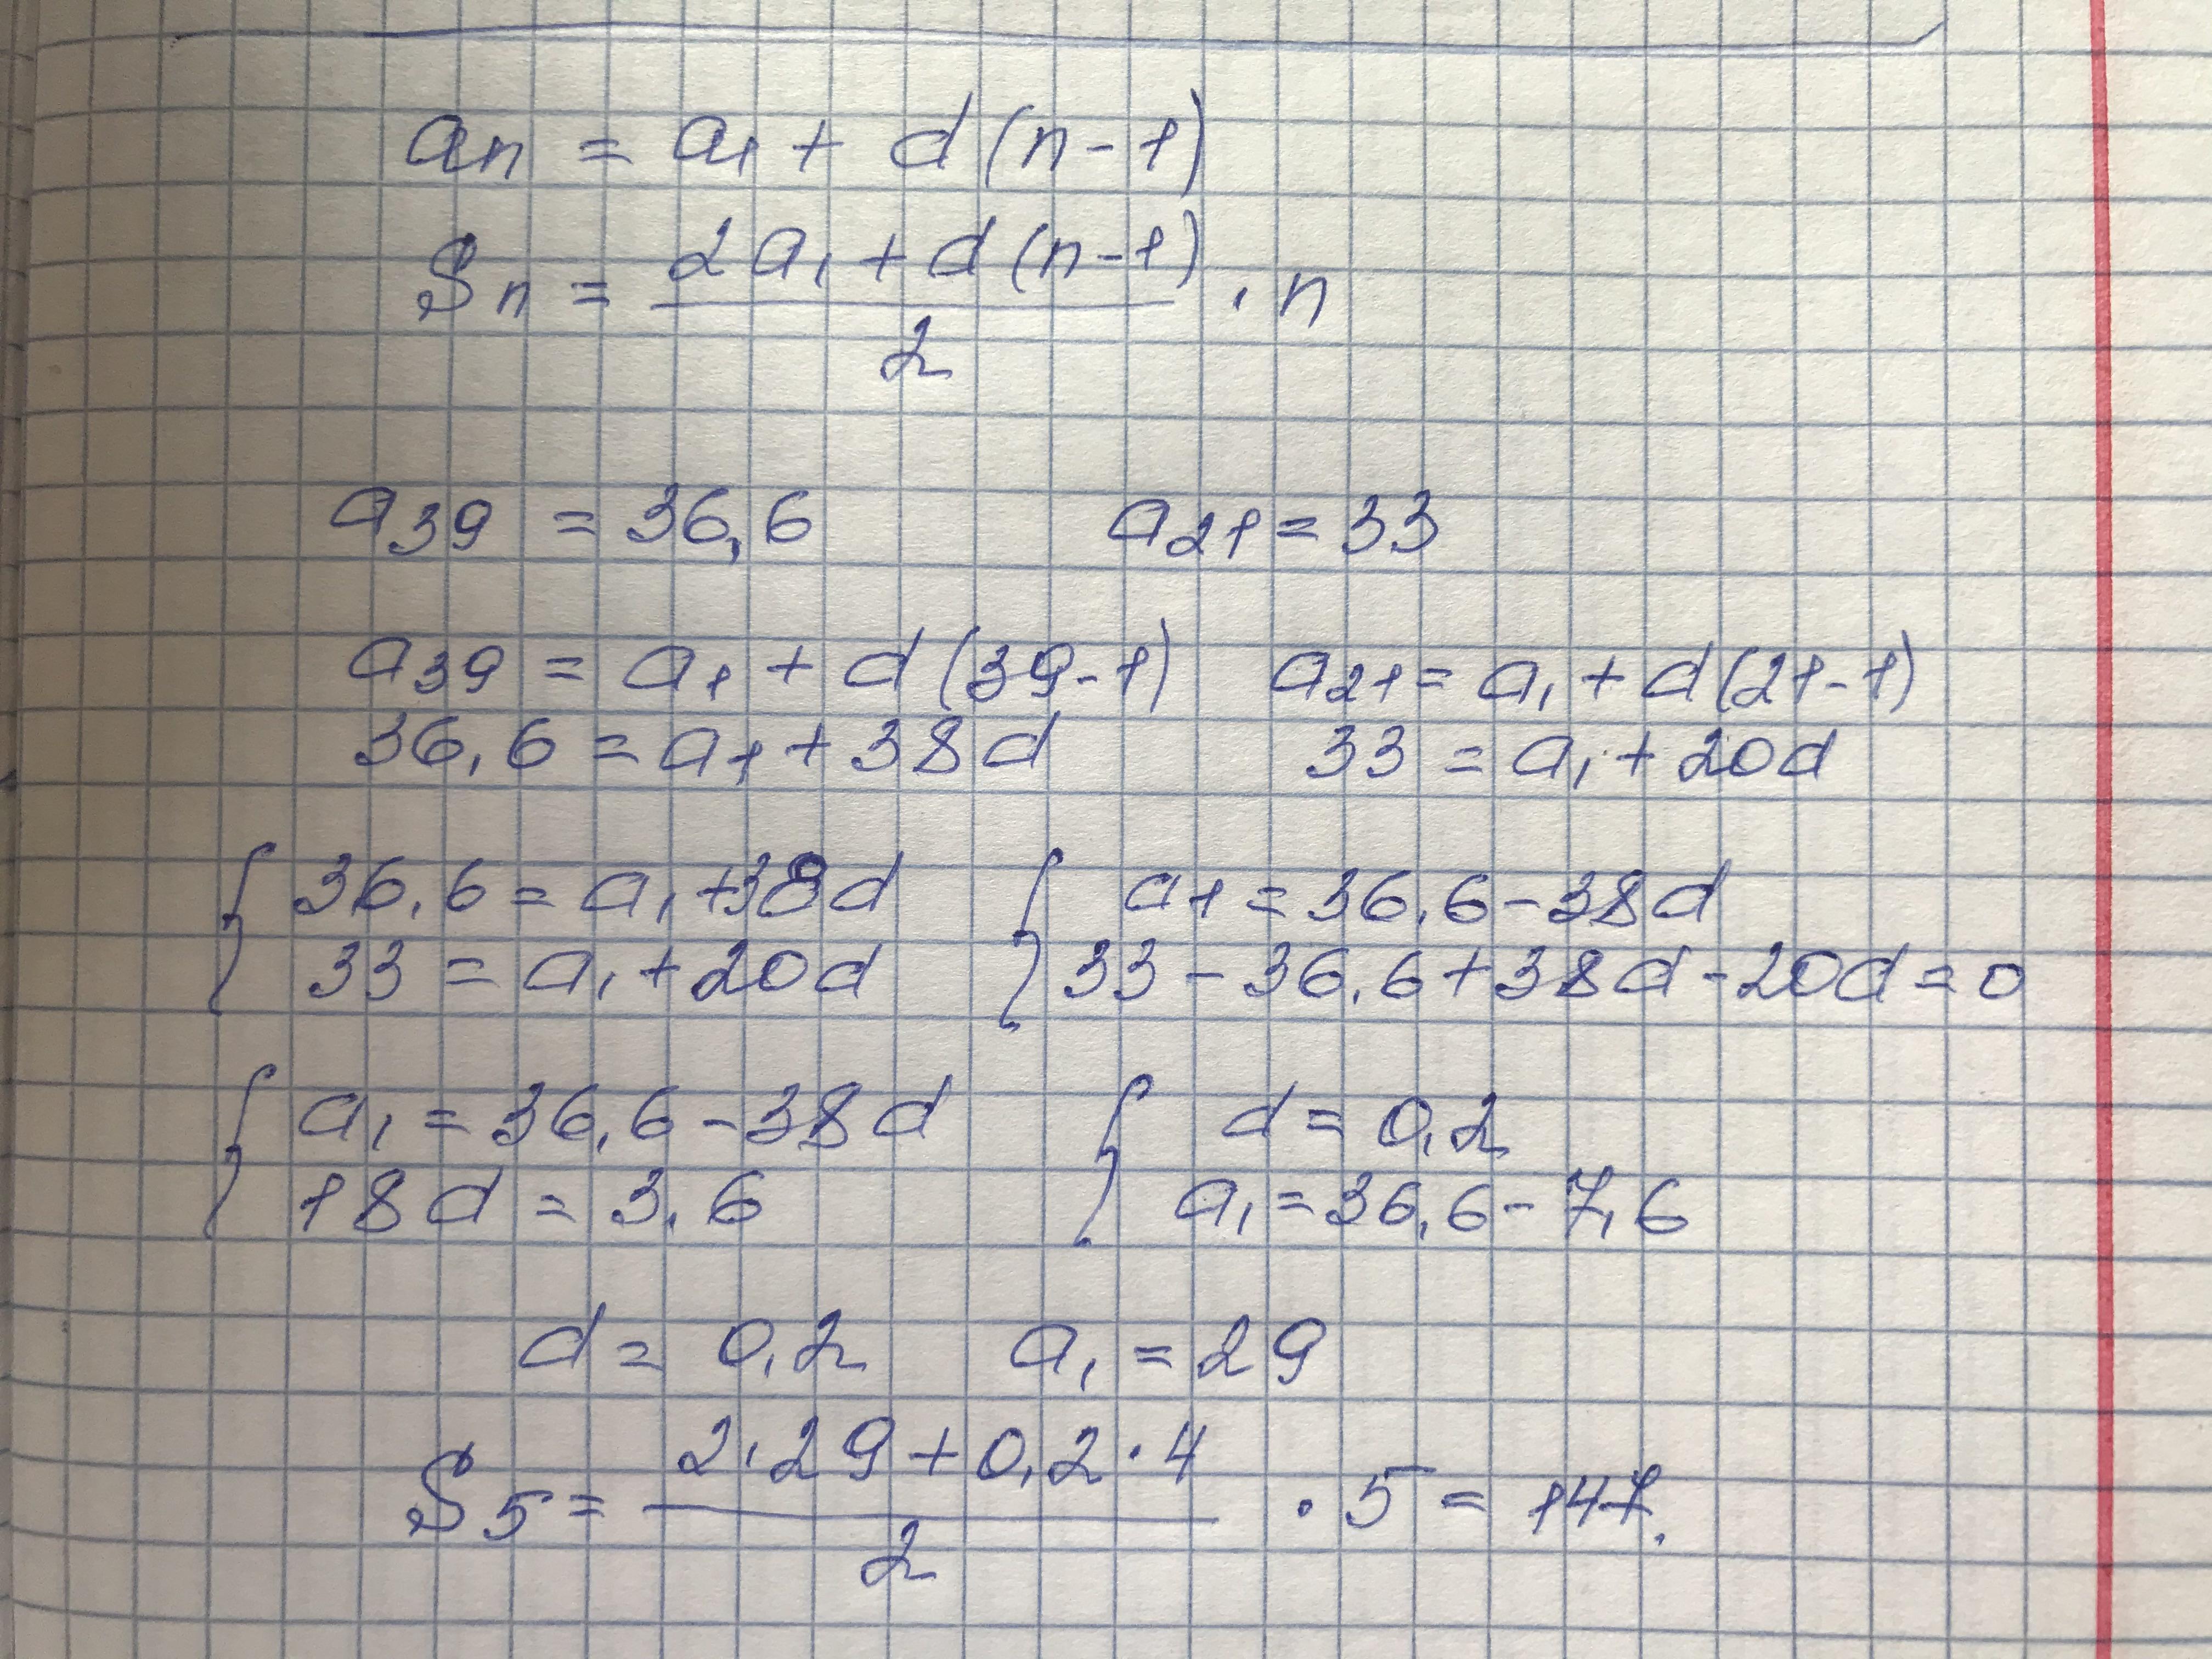 an = a1 + d(n-1)
Sn = (2a1 + d(n-1))/2 · n
a39 = 36,6 a21 = 33
a39 = a1 + d(39-1) a21 = a1 + d(21-1)
36,6 = a1 + 38d 33 = a1 + 20d
{ 36,6 = a1 + 38d { a1 = 36,6 - 38d
33 = a1 + 20d 33 - 36,6 + 38d - 20d = 0
{ a1 = 36,6 - 38d { d = 0,2
18d = 3,6 a1 = 36,6 - 7,6
d = 0,2 a1 = 29
S5 = (2·29 + 0,2·4)/2 · 5 = 147.